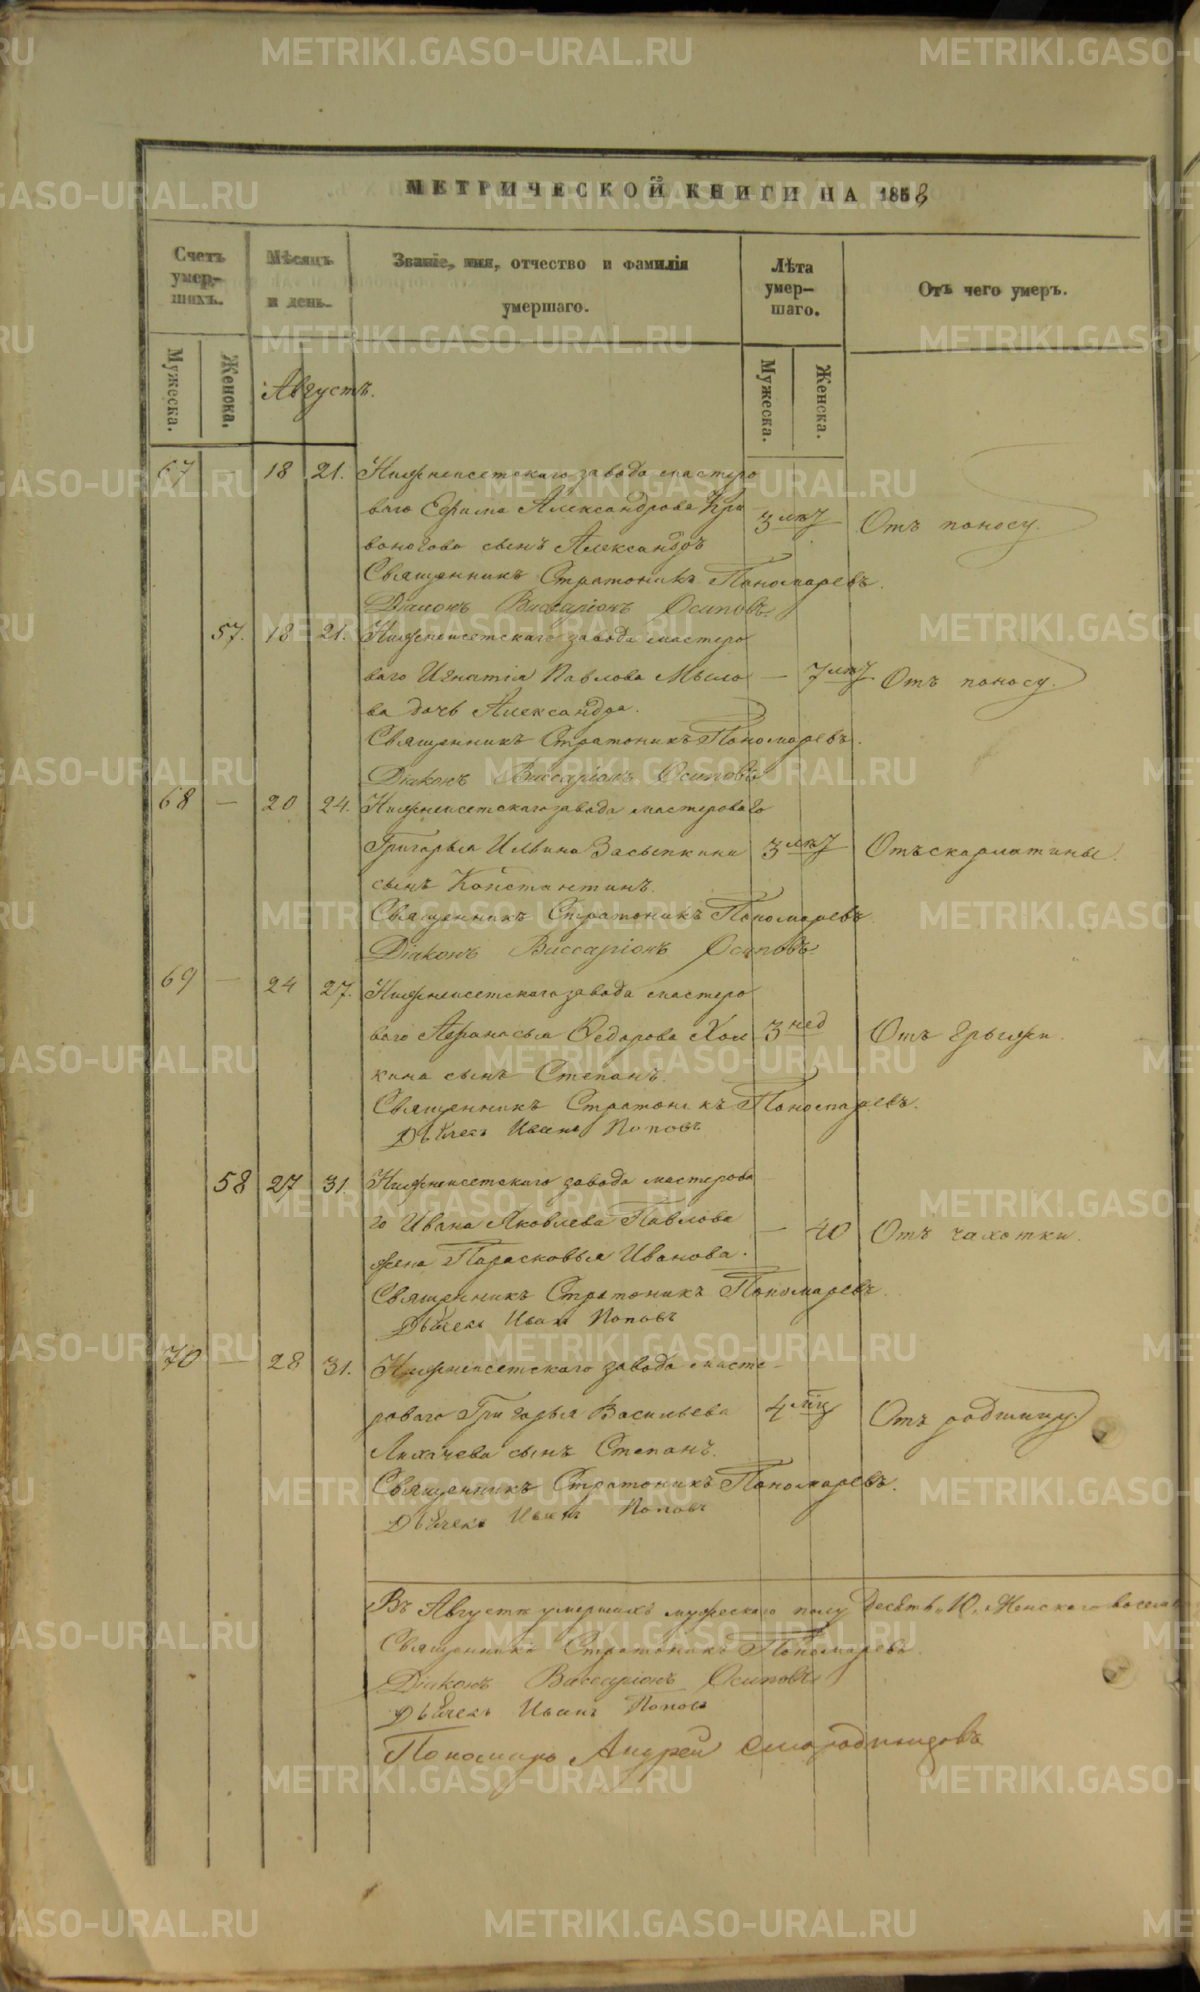 МЕТРИЧЕСКОЙ КНИГИ НА 1858
Счетъ умер-шихъ.
Мѣсяцъ и день.
Званіе, имя, отчество и фамилія
умершаго.
Лѣта умер-шаго.
Отъ чего умеръ.
Мужеска.
Женска.
Августъ.
Мужеска.
Женска.
67 - 18 21. Нижнеисетскаго завода мастеро
ваго Ефима Александрова Кри 3 лѣт Отъ поносу.
воногова сынъ Александръ
Священникъ Стратоникъ Пономаревъ.
Діаконъ Виссаріонъ Осиповъ.
57. 18 21. Нижнеисетскаго завода мастеро
ваго Игнатія Павлова Мыло — 7 лѣт Отъ поносу.
ва дочь Александра.
Священникъ Стратоникъ Пономаревъ.
Діаконъ Виссаріонъ Осиповъ
68 — 20 24. Нижнеисетскаго завода мастероваго
Григорья Ильина Засыпкина 3 лѣт Отъ скарлатины.
сынъ Константинъ.
Священникъ Стратоникъ Пономаревъ.
Діаконъ Виссаріонъ Осиповъ.
69 — 24 27. Нижнеисетскаго завода мастеро
ваго Афанасья Ѳедорова Хом 3 нед Отъ грыжи.
кина сынъ Степанъ.
Священникъ Стратоникъ Пономаревъ.
Дьячекъ Иванъ Поповъ
58 27 31. Нижнеисетскаго завода мастерова
го Ивана Яковлева Павлова — 40 Отъ чахотки.
жена Парасковья Иванова.
Священникъ Стратоникъ Пономаревъ.
Дьячекъ Иванъ Поповъ
70 — 28 31. Нижнеисетскаго завода масте-
роваго Григорья Васильева 4 мѣц Отъ родимцу.
Лихачева сынъ Степанъ.
Священникъ Стратоникъ Пономаревъ.
Дьячекъ Иванъ Поповъ
Въ Августѣ умершихъ мужескаго полу десять, 10, Женскаго
Священникъ Стратоникъ Пономаревъ.
Діаконъ Виссаріонъ Осиповъ
Дьячекъ Иванъ Поповъ
Пономарь Андрей Смородинцовъ
METRIKI.GASO-URAL.RU